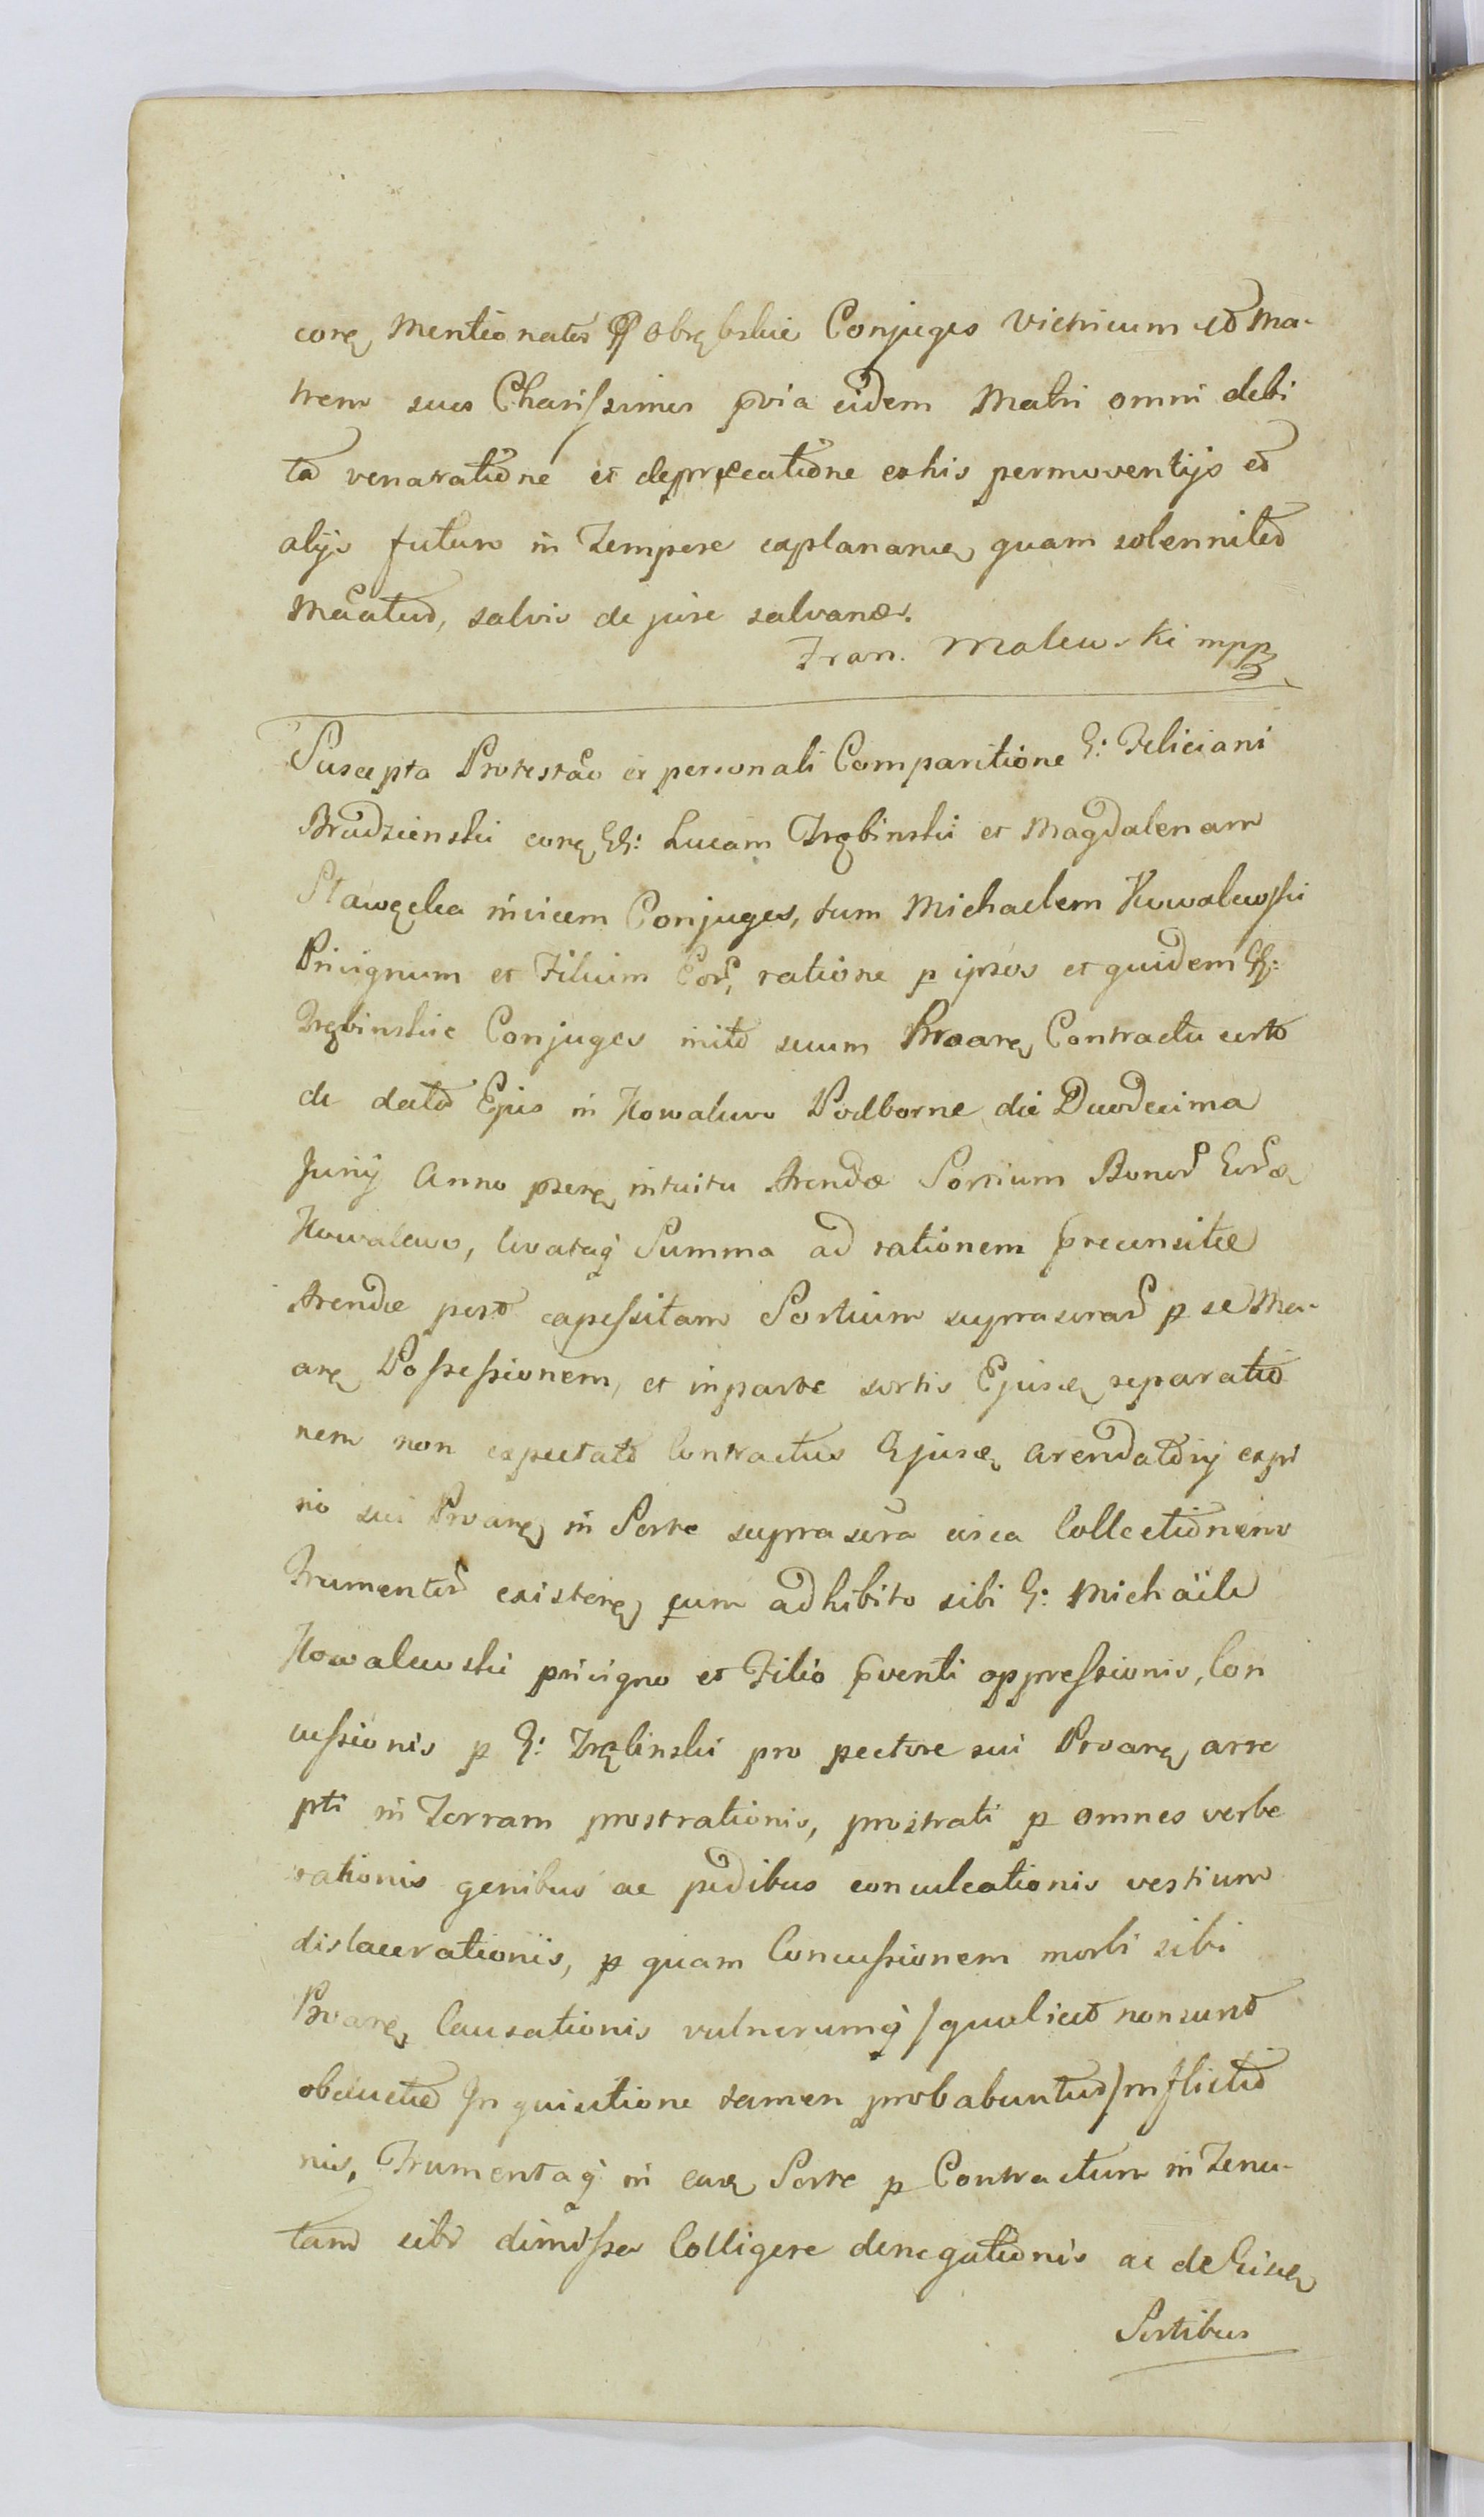 corę mentionatos GG Obrębskie Conjuges Vitricum et Ma-
trem suos Charissimos pvia eidem Matri omni debi
ta veneratione et deprecatione ex his permoventijs et
alijs futuro in Tempore explananę quam solenniter
Mcatur, salvis de jure salvanis.
Fran. Malewski mpp
Suscepta Protestao ex personali Comparitione G: Feliciani
Brudzienski corę GG: Lucam Trębinski et Magdalenam
Sławęcka invicem Conjuges, tum Michaelem Kowalewski
Privignum et Filium Eor, ratione p ipsos et quidem GG:
Trębinskie Conjuges inito secum Proarę Contractu certo
de dato Ejus in Kowalewo Podborne die Duodecima
Junij Anno psenę intuitu Arendæ Sortium Bonor Eorę
Kowalewo, levataq Summa ad rationem precensitæ
Arendæ post capessitam Sortium suprascrar p se Me-
arę Possessionem, et in parte sortis Ejusę separatio
nem non expectato Contractus Ejusę arendatorij expi
rio sui Proarę in Sorte suprascra circa Collectionem
Frumentor existenę cum adhibito sibi G: Michaele
Kowalewski privigno et Filio pventi oppressionis, Con
cussionis p G: Trębinski pro pectore sui Proarę arre
pti in Terram prostrationis, prostrati p omnes verbe
rationis genibus ac pedibus conculcationis vestium
dislacerationis, p quam Concussionem morbi sibi
Proarę Causationis vulnerumq /quæ licet non sunt
obducta Inquisitione tamen probabuntur/ inflictio
nis, Frumentaq in eaę Sorte p Contractum in Tenu-
tam sibi dimissa Colligere denegationis ac de Eisę
Sortibus